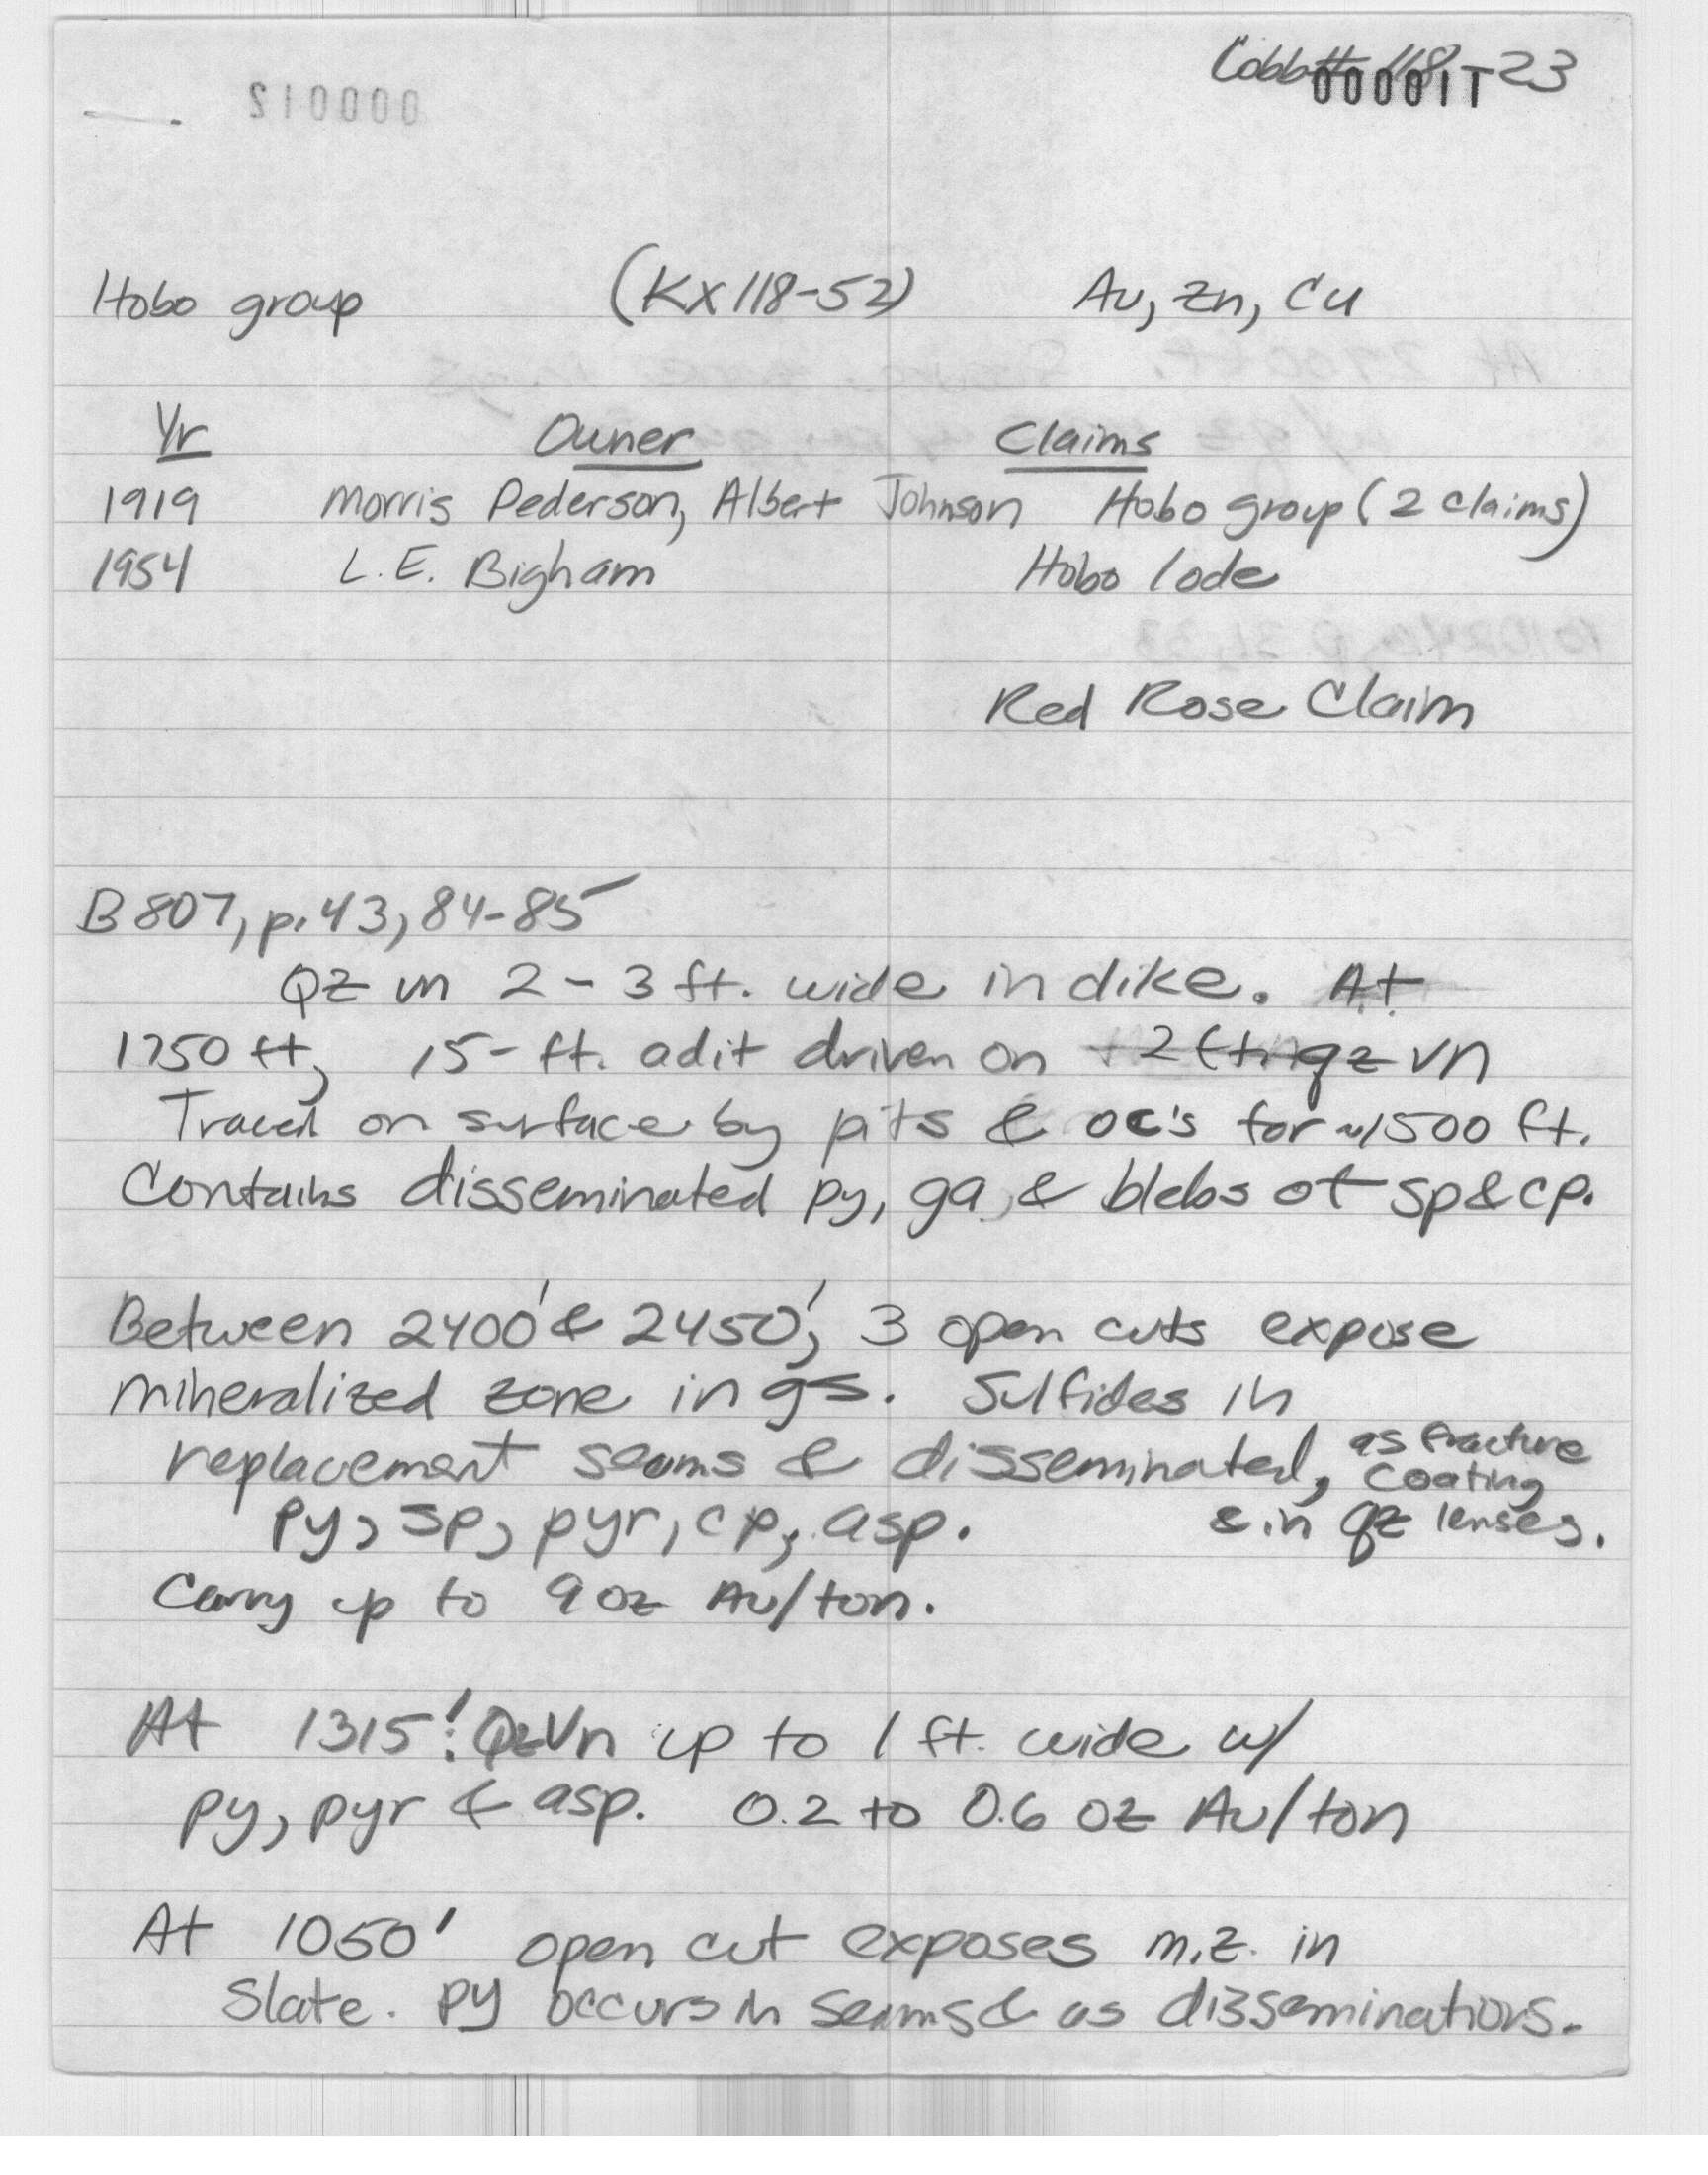 Cobb # 118-23
000011
Hobo group (KX 118-52) Au, Zn, Cu
Yr Owner Claims
1919 Morris Pederson, Albert Johnson Hobo group (2 claims)
1954 L.E. Bigham Hobo lode
Red Rose Claim
B 807, p. 43, 84-85
QZ vn 2-3 ft. wide in dike. At
1750 ft, 15-ft. adit driven on 2 ft qz vn
Traced on surface by pits & oc's for ~1500 ft.
Contains disseminated py, ga, & blebs of sp & cp.
Between 2400' & 2450', 3 open cuts expose
mineralized zone in gs. Sulfides in
replacement seams & disseminated, as fracture coating
py, sp, pyr, cp, asp. & in qz lenses.
Carry up to 9 oz Au/ton.
At 1315': Qz Vn up to 1 ft. wide w/
py, pyr & asp. 0.2 to 0.6 oz Au/ton
At 1050' open cut exposes m.z. in
slate. py occurs in seams & as disseminations.